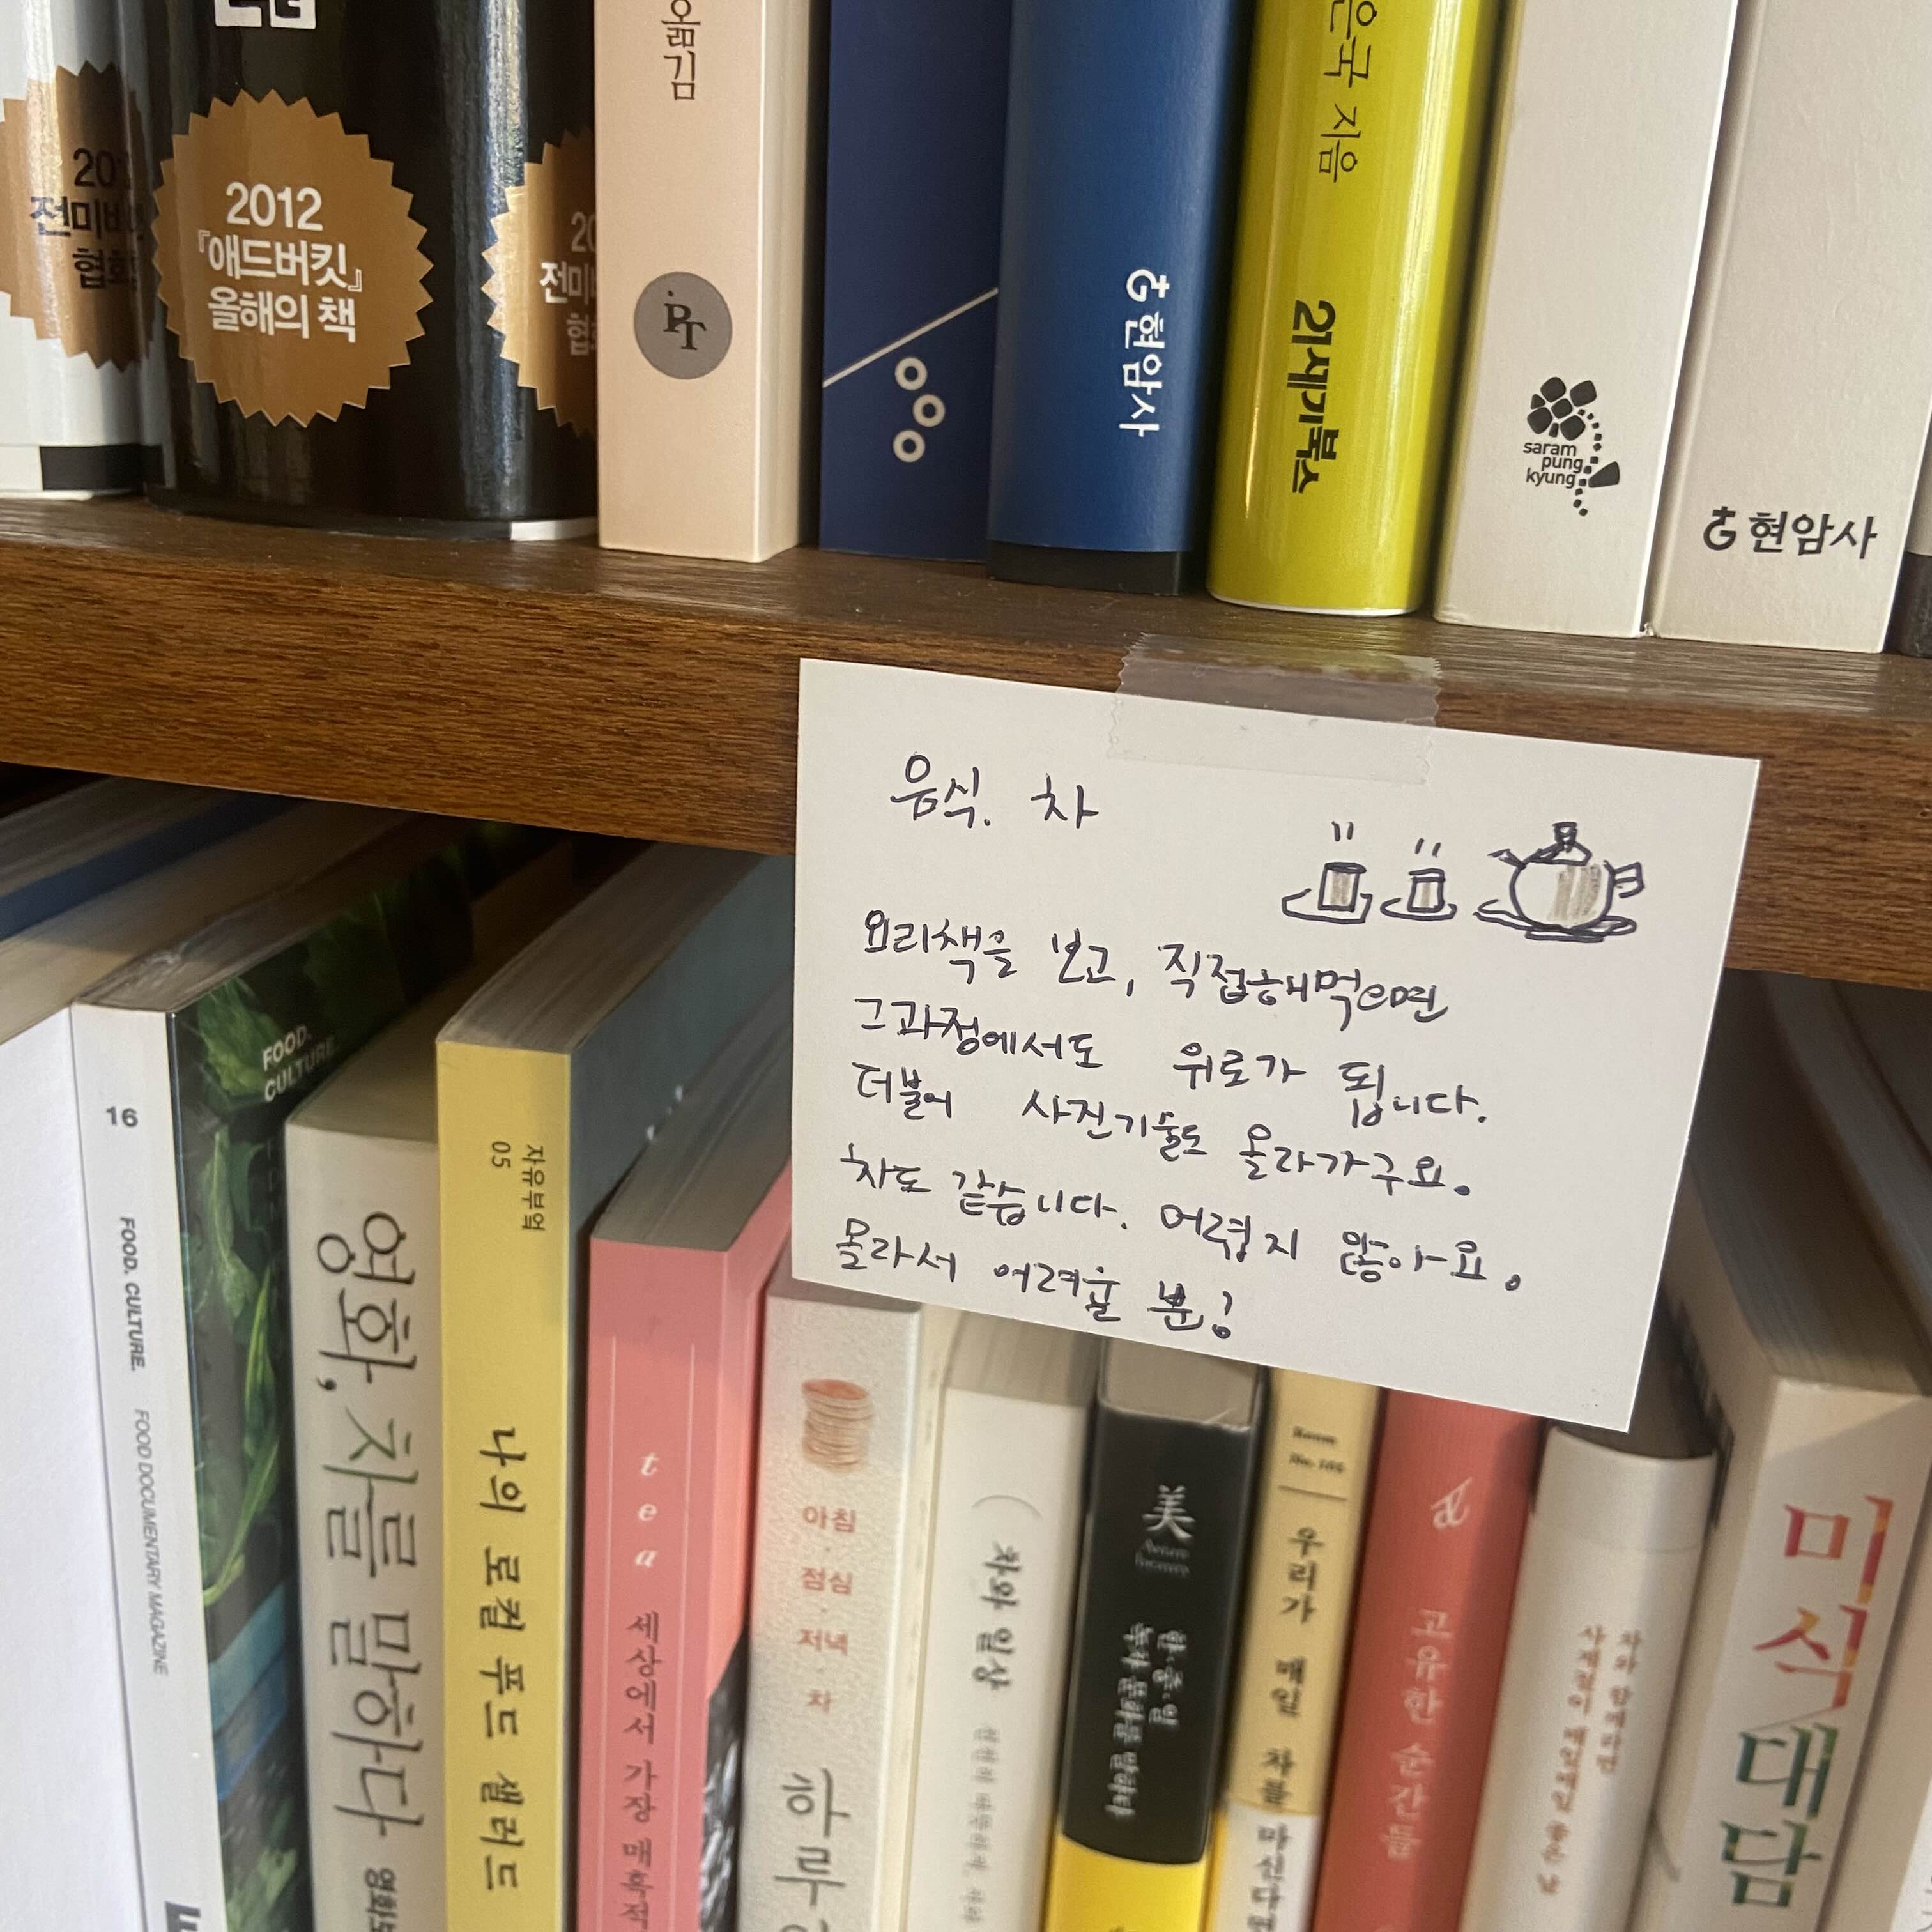 2012
『애드버킷』
올해의 책
옮김
PT
현암사
은국 지음
21세기북스
saram
pung
kyung
현암사
음식. 차
요리책을 보고, 직접해먹으면
그과정에서도 위로가 됩니다.
더불어 사진기술도 올라가구요.
차도 같습니다. 어렵지 않아요.
몰라서 어려울 뿐!
16
FOOD. CULTURE.
FOOD DOCUMENTARY MAGAZINE
FOOD.
CULTURE
영화, 차를 말하다
자유부엌
05
나의 로컬 푸드 샐러드
tea 세상에서 가장 매혹적
아침
점심
저녁
차
하루
차와 일상
美
한·중·일
녹차 문화를 말하다
Room
No.105
우리가 매일 차를 마신다면
& 고유한 순간들
차와 함께라면
사계절이 매일매일 좋은 날
미식대담